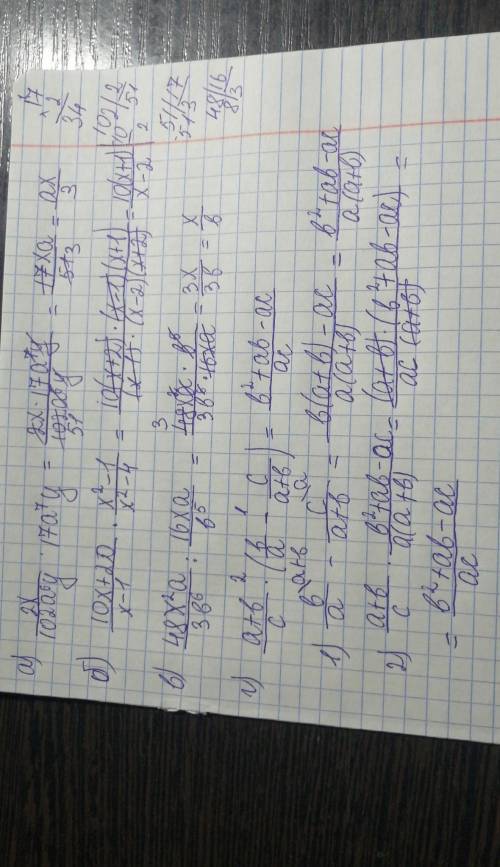 а) 2x/102a⁶y · 17a⁷y = 2x · 17a⁷y/102a⁶y = 17xa/51 = ax/3
б) 10x+20/x-1 · x²-1/x²-4 = 10(x+2) · (x-1)(x+1)/(x-1) · (x-2)(x+2) = 10(x+1)/x-2
в) 48x²a/3b⁶ : 16xa/b⁵ = 48x²a · b⁵/3b⁶ · 16xa = 3x/3b = x/b
г) a+b/c · (b/a - c/a+b) = b²+ab-ac/ac
1) b/a - c/a+b = b(a+b)-ac/a(a+b) = b²+ab-ac/a(a+b)
2) a+b/c · b²+ab-ac/a(a+b) = (a+b) · (b²+ab-ac)/ac(a+b) =
= b²+ab-ac/ac
×17
2
34
102|2
10 51
2
51|17
51 3
48|16
8 3